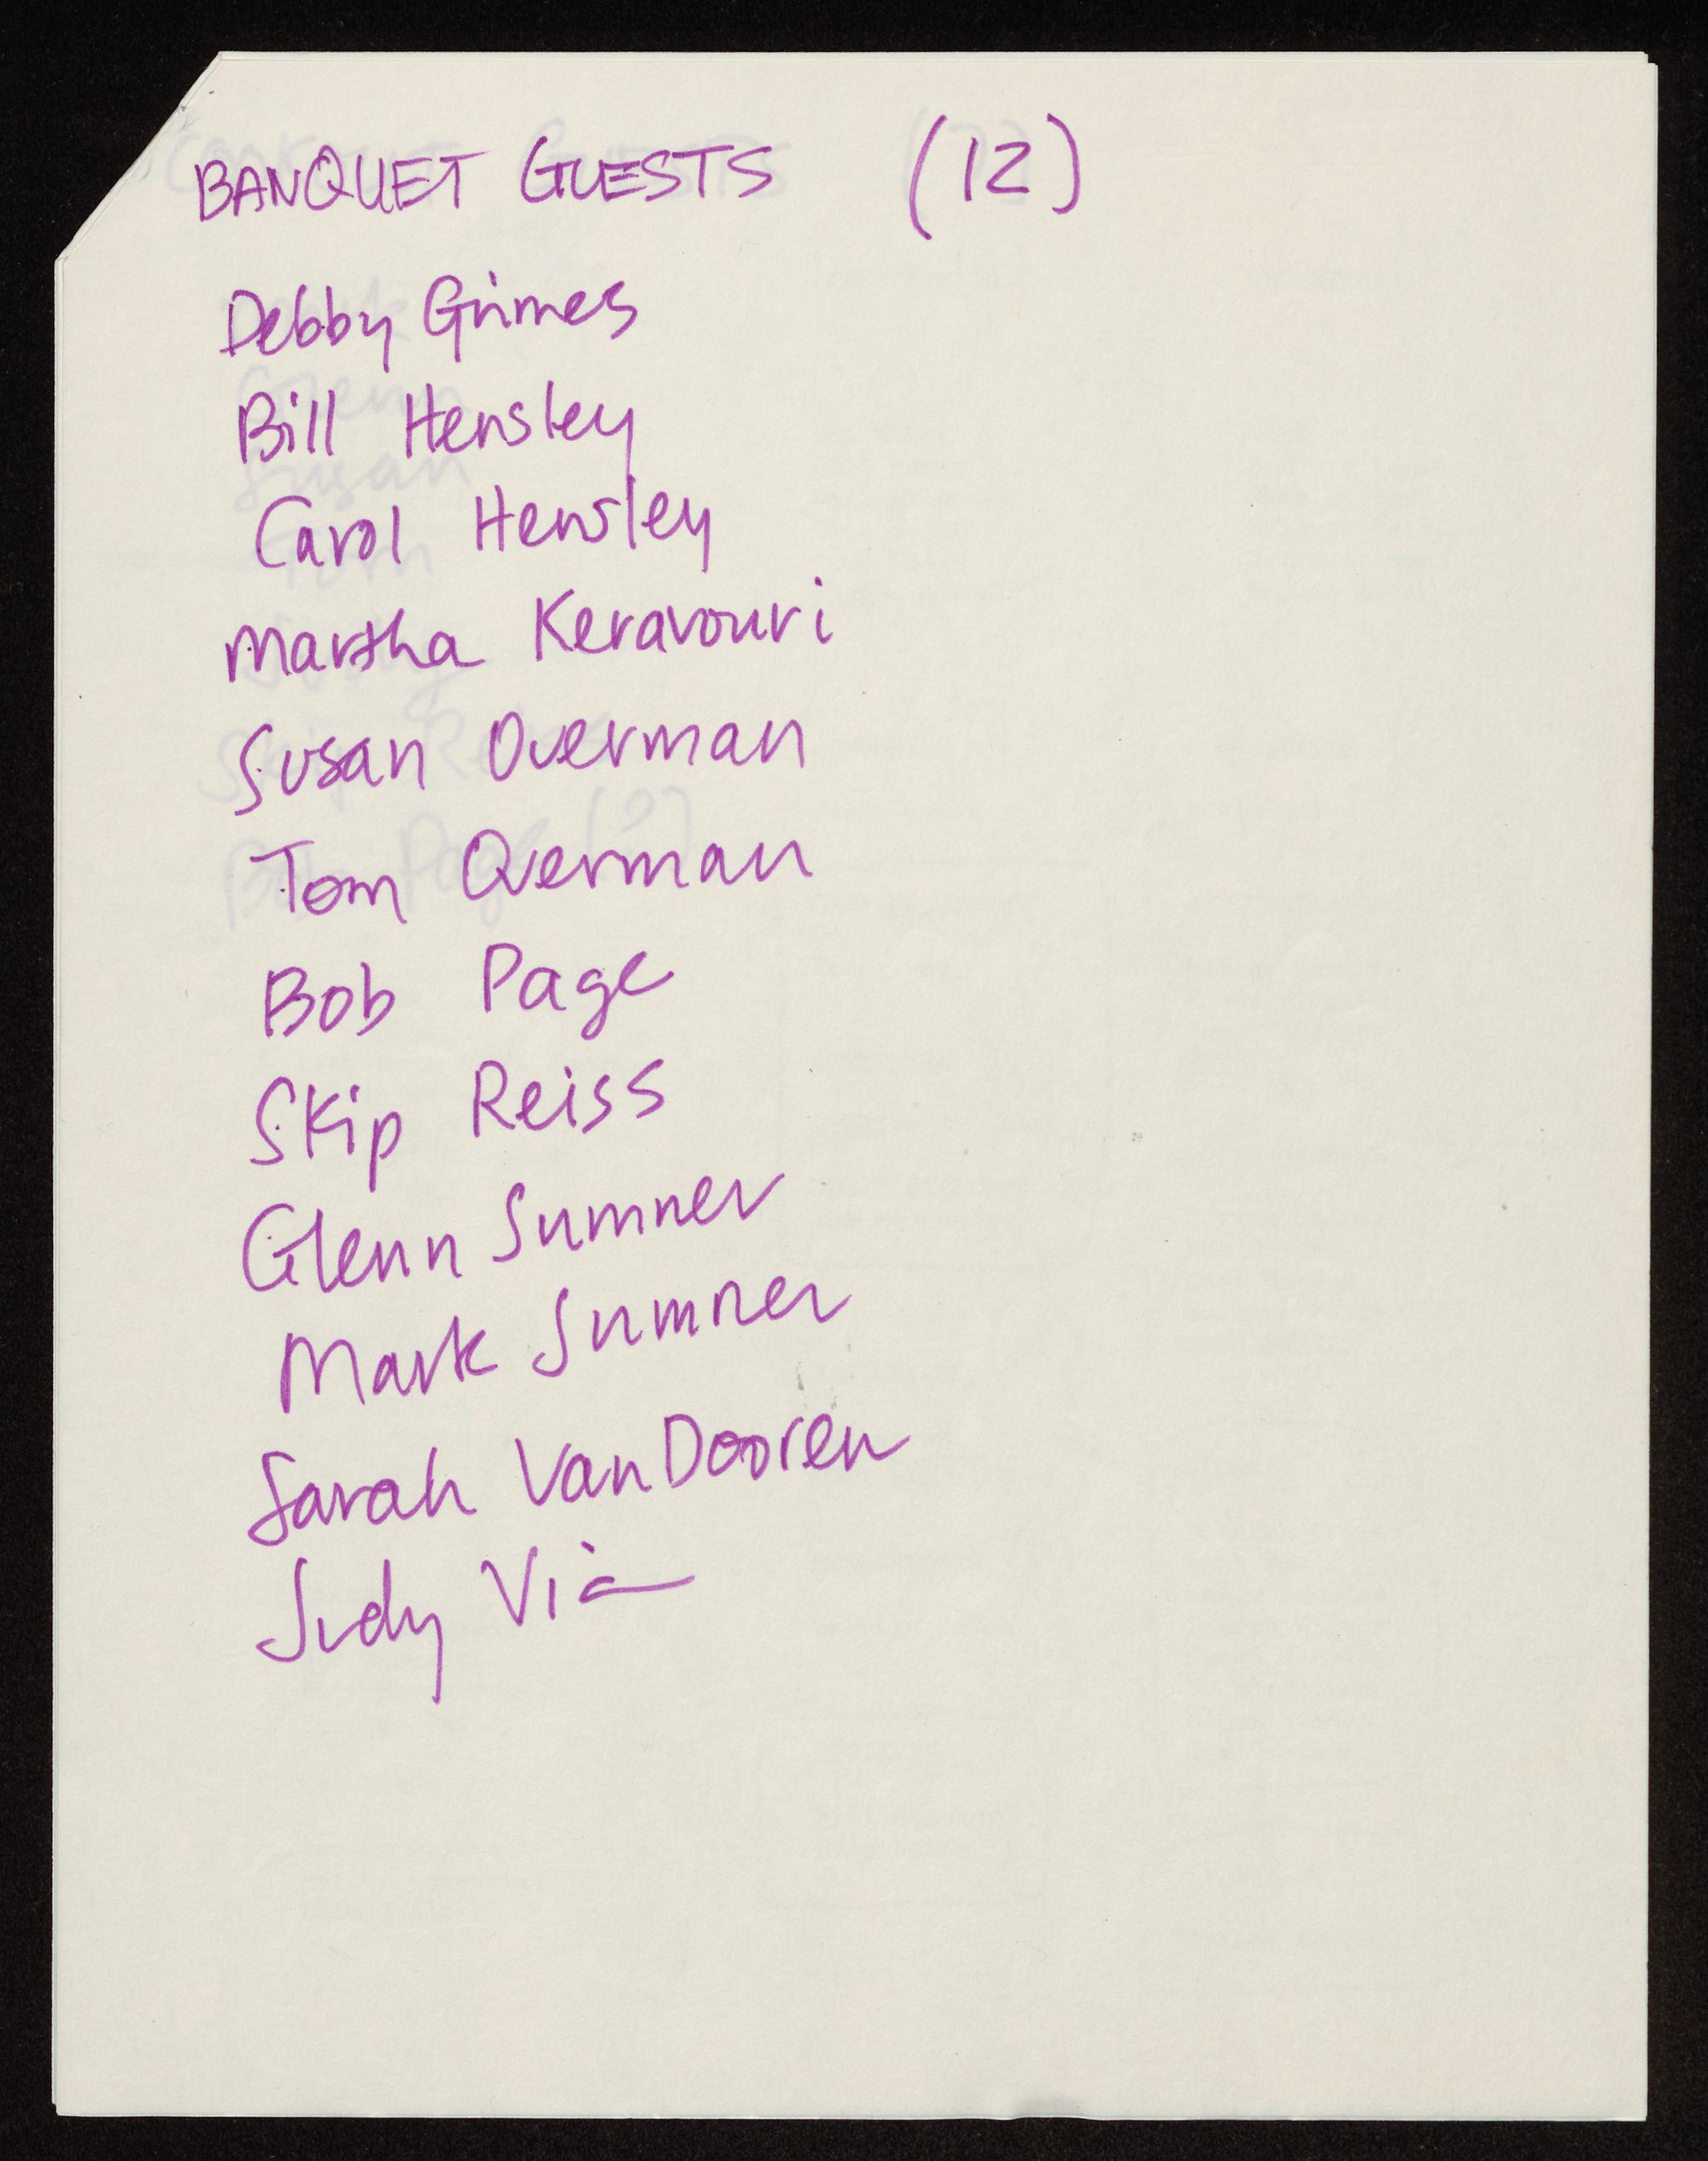 BANQUET GUESTS (12)
Debby Grimes
Bill Hensley
Carol Hensley
Martha Keravouri
Susan Overman
Tom Overman
Bob Page
Skip Reiss
Glenn Sumner
Mark Sumner
Sarah VanDooren
Judy Via